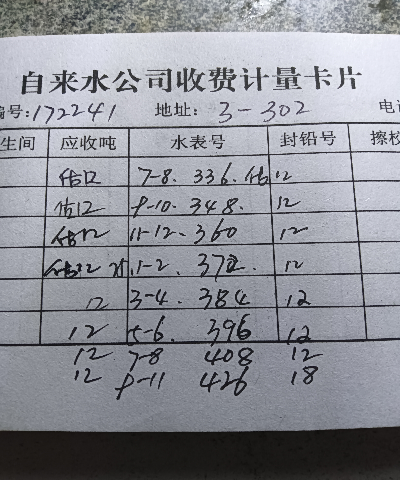 自来水公司收费计量卡片
编号:172241 地址: 3-302 电
生间 应收吨 水表号 封铅号 擦校
估12 7-8. 336. 估12
估12 9-10. 348. 12
估12 11-12. 360 12
估12 1-2. 372. 12
12 3-4. 384 12
12 5-6. 396 12
12 7-8 408 12
12 9-11 426 18